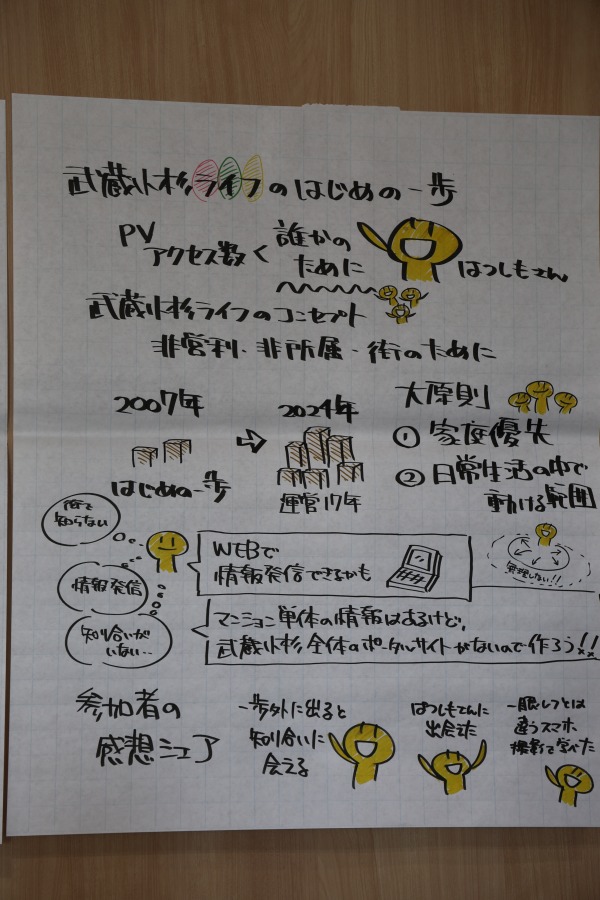 武蔵小杉ライフのはじめの一歩
PV
アクセス数 < 誰かの
ために
はつしもさん
武蔵小杉ライフのコンセプト
非営利・非所属・街のために
2007年
はじめの一歩
⇨
2024年
運営17年
大原則
① 家庭優先
② 日常生活の中で
動ける範囲
無理しない!!
街を
知らない
情報発信
知り合いが
いない…
WEBで
情報発信できるかも
マンション単体の情報はあるけど、
武蔵小杉全体のポータルサイトがないので作ろう!!
参加者の
感想シェア
一歩外に出ると
知り合いに
会える
はつしもさんに
出会えた
一眼レフとは
違うスマホ
撮影で学べた